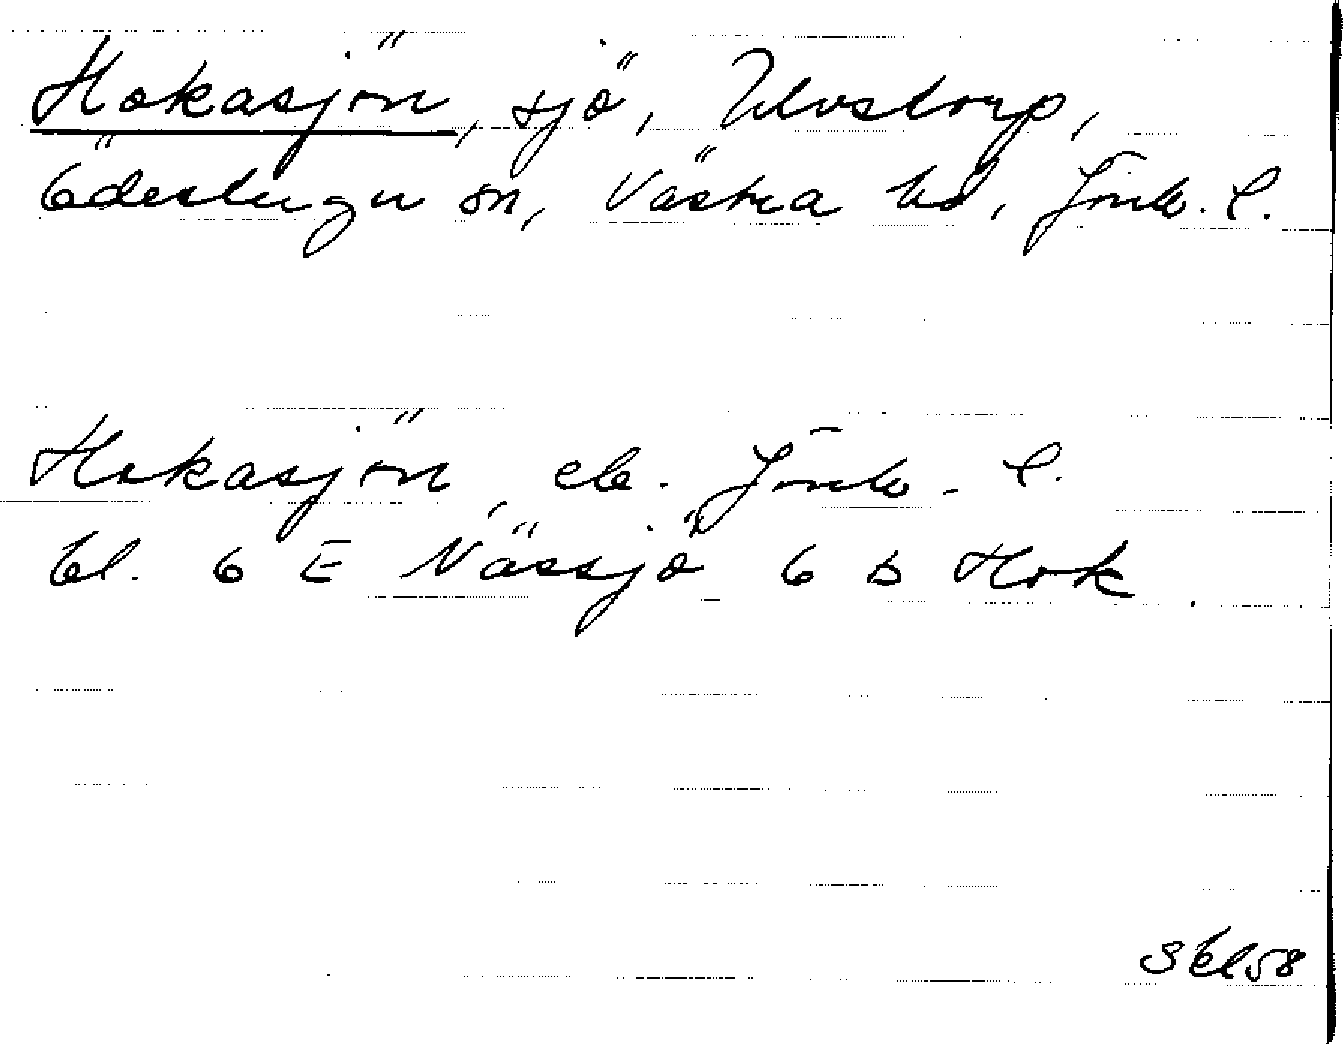 Hokasjön, sjö, Ulvstorp,
Ödestugu sn, Västra hd, Jönk. l.
Hokasjön, ek. Jönk. l.
bl. 6 E Nässjö 6 b Hok.